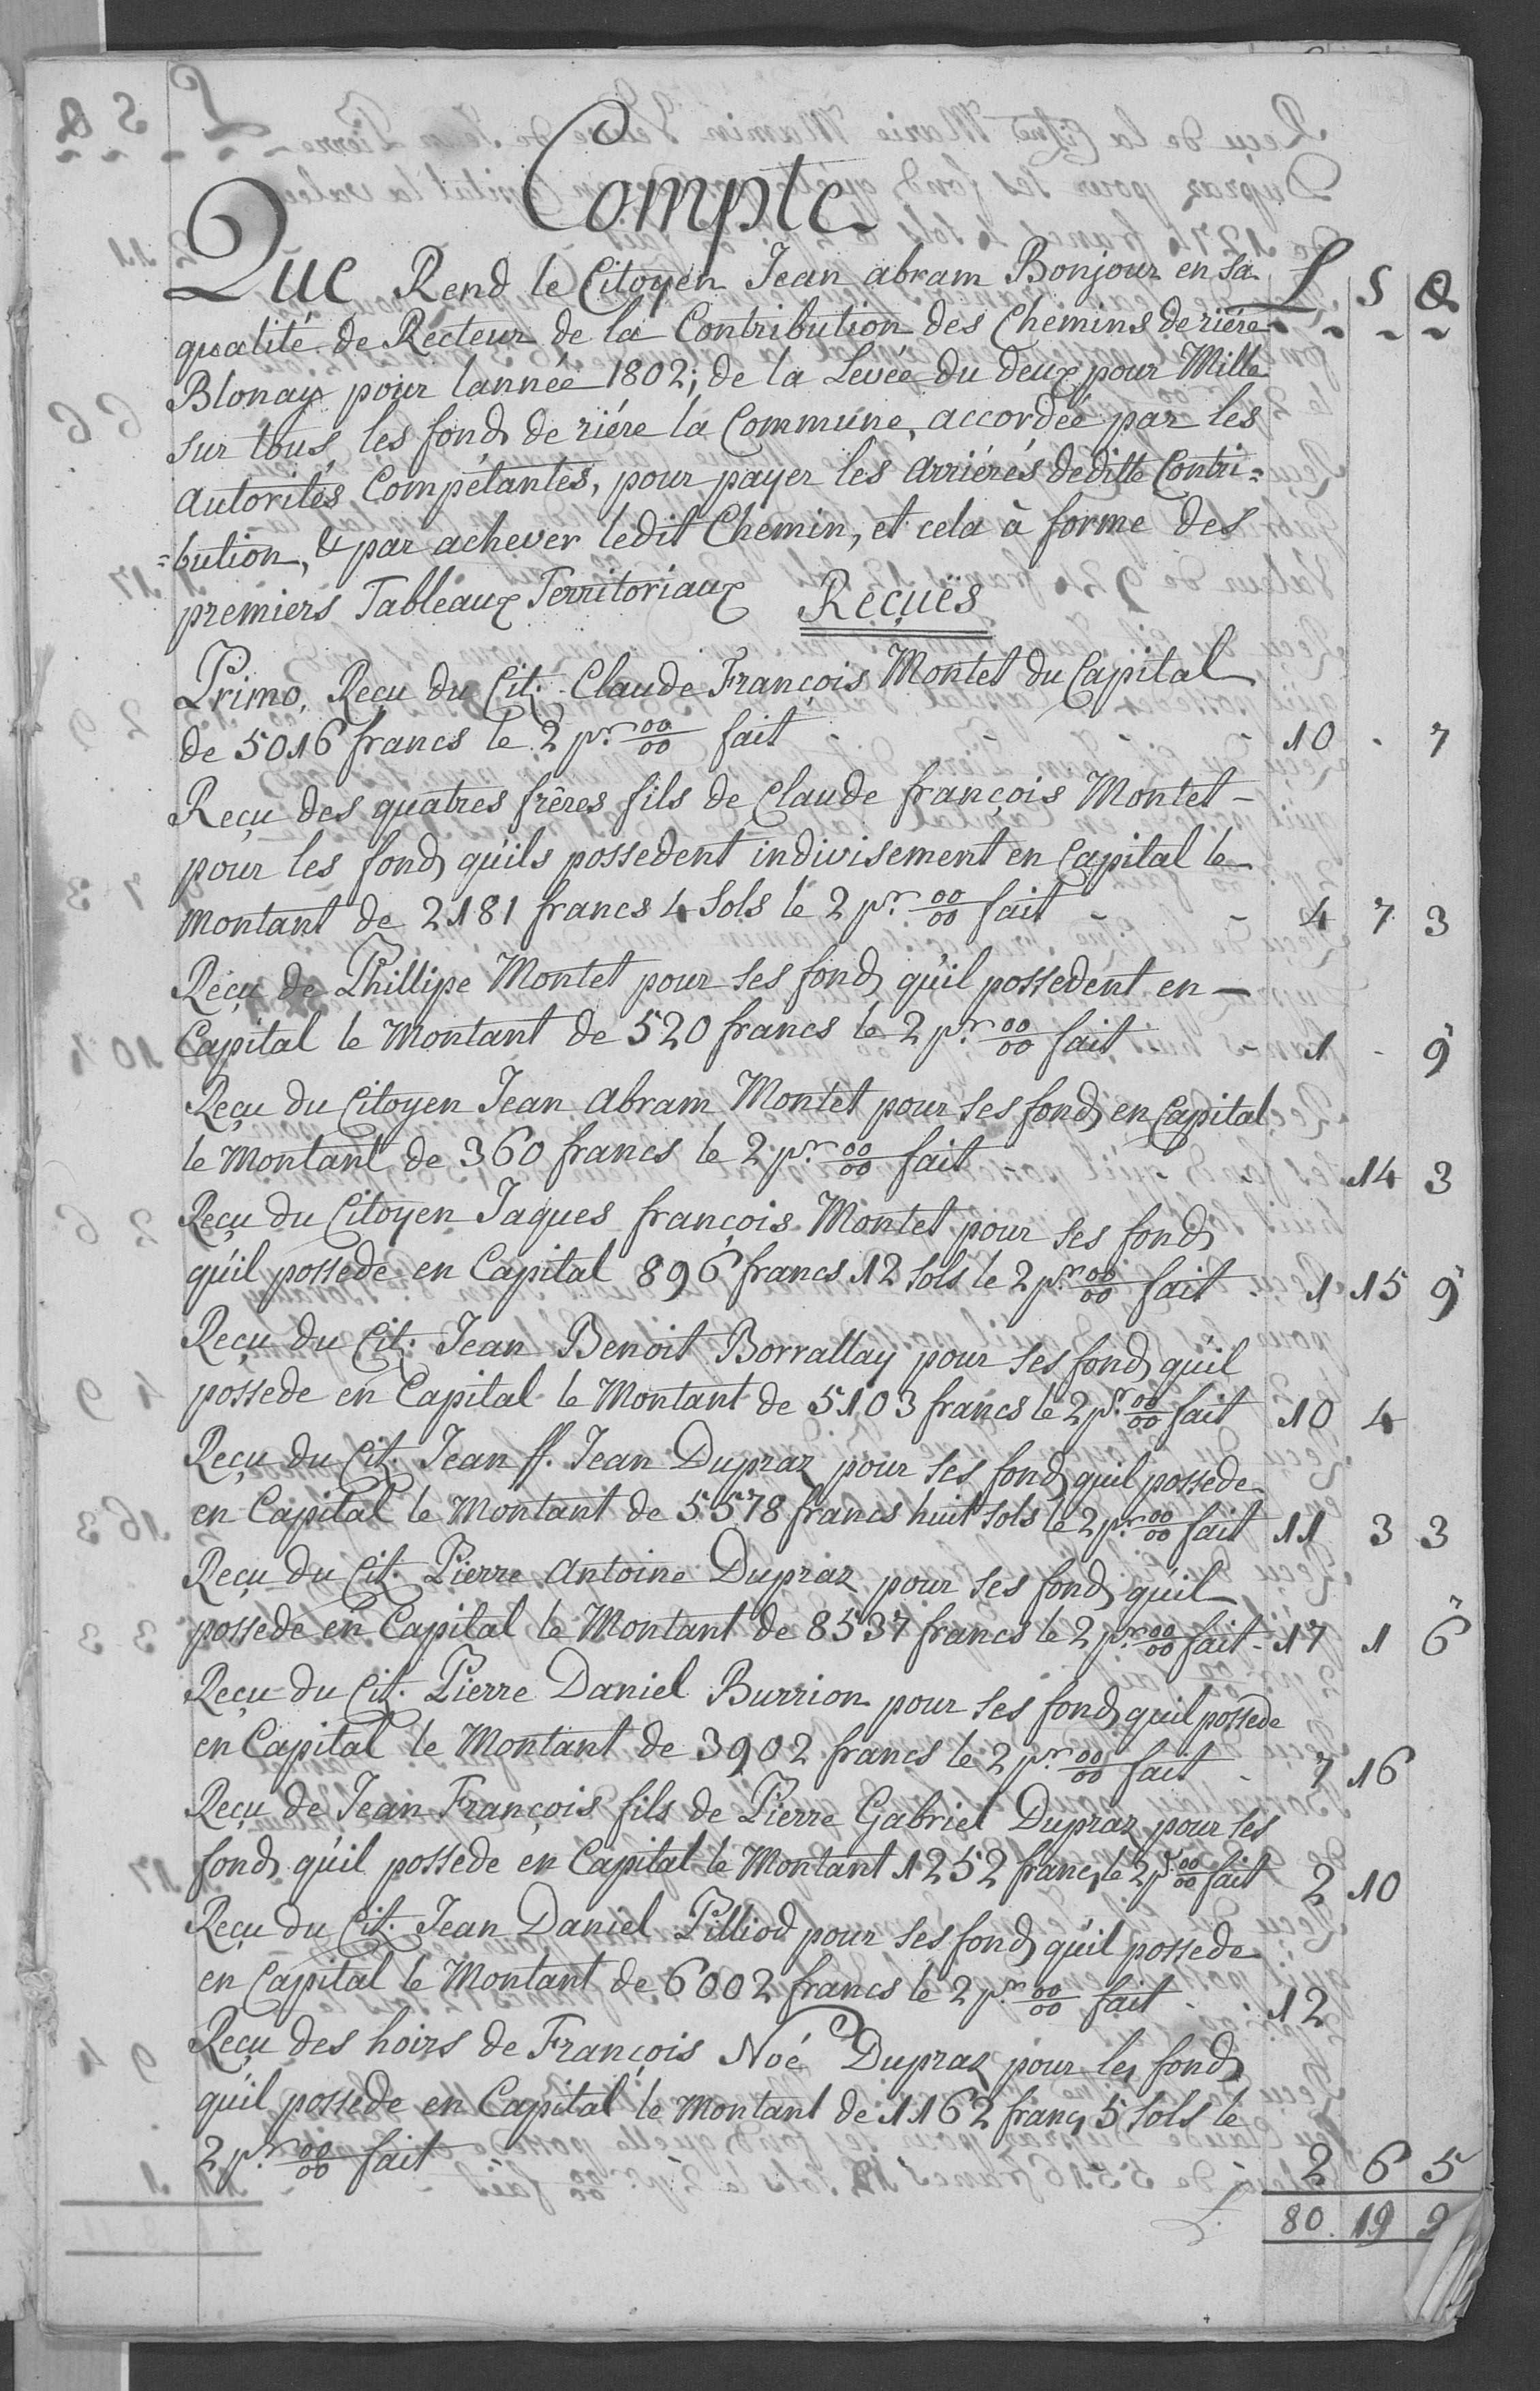 Compte
Que Rend le Citoyen Jean abram Bonjour en sa L S D
qualité de Récteur de la Contribution des Chemins de riére
Blonay pour lannée 1802; de la Levée du deux pour Mille
sur tous les fonds de riére la Commune, accordée par les
autorités Compétantes, pour payer les arriérés deditte Contri=
=bution, & par achever ledit Chemin, et cela à forme des
premiers Tableaux Territoriaux Reçuës
Primo, Reçu du Cit: Claude François Montet du Capital
de 5016 francs le 2 pr. 00/00 fait - - - 10 - 7
Reçu des quatres frêres fils de Claude françois Montet -
pour les fonds qu'ils possedent indivisement en Capital le
montant de 2181 francs 4 Sols le 2 pr. 00/00 fait - - 4 7 3
Reçu de Phillipe Montet pour ses fonds qu'il possedent en -
Capital le Montant de 520 francs le 2 pr. 00/00 fait - - 1 - 9
Reçu du Citoyen Jean Abram Montet pour ses fonds en Capital
le Montant de 360 francs le 2 pr. 00/00 fait - - 14 3
Reçu du Citoyen Jaques françois Montet pour ses fonds
qu'il possede en Capital 896 francs 12 sols le 2 pr. 00/00 fait - 1 15 9
Reçu du Cit: Jean Benoit Borrallay pour ses fonds qu'il
possede en Capital le Montant de 5103 francs le 2 pr. 00/00 fait 10 4
Reçu du Cit. Jean ff. Jean Dupraz pour ses fonds qu'il possede
en Capital le Montant de 5578 francs huit Sols le 2 pr. 00/00 fait 11 3 3
Reçu du Cit. Pierre Antoine Dupraz pour ses fonds qu'il
possede en Capital le Montant de 8537 francs le 2 pr. 00/00 fait - 17 1 6
Reçu du Cit. Pierre Daniel Burrion pour ses fonds quil possede
en Capital le Montant de 3902 francs le 2 pr. 00/00 fait - 7 16
Reçu de Jean François fils de Pierre Gabriel Dupraz pour ses
fonds qu'il possede en Capital le Montant 1252 francs le 2 pr. 00/00 fait 2 10
Reçu du Cit. Jean Daniel Pilliod pour ses fonds qu'il possede
en Capital le Montant de 6002 francs le 2 pr. 00/00 fait - 12
Reçu des hoirs de François Noé Dupraz pour les fonds
qu'il possede en Capital le Montant de 1162 francs 5 Sols le
2 pr. 00/00 fait 2 6 5
L. 80. 19 9